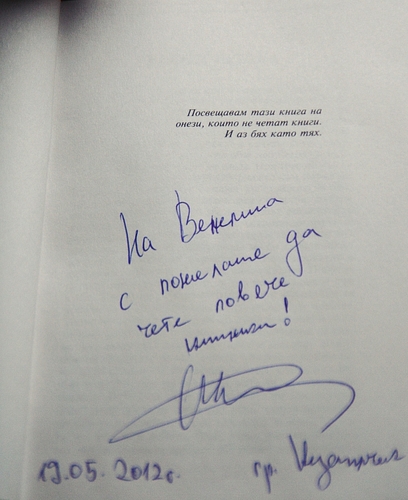 Посвещавам тази книга на
онези, които не четат книги.
И аз бях като тях.
На
с пожелание да
чете повече
книжки!
19.05.2012г.
гр.